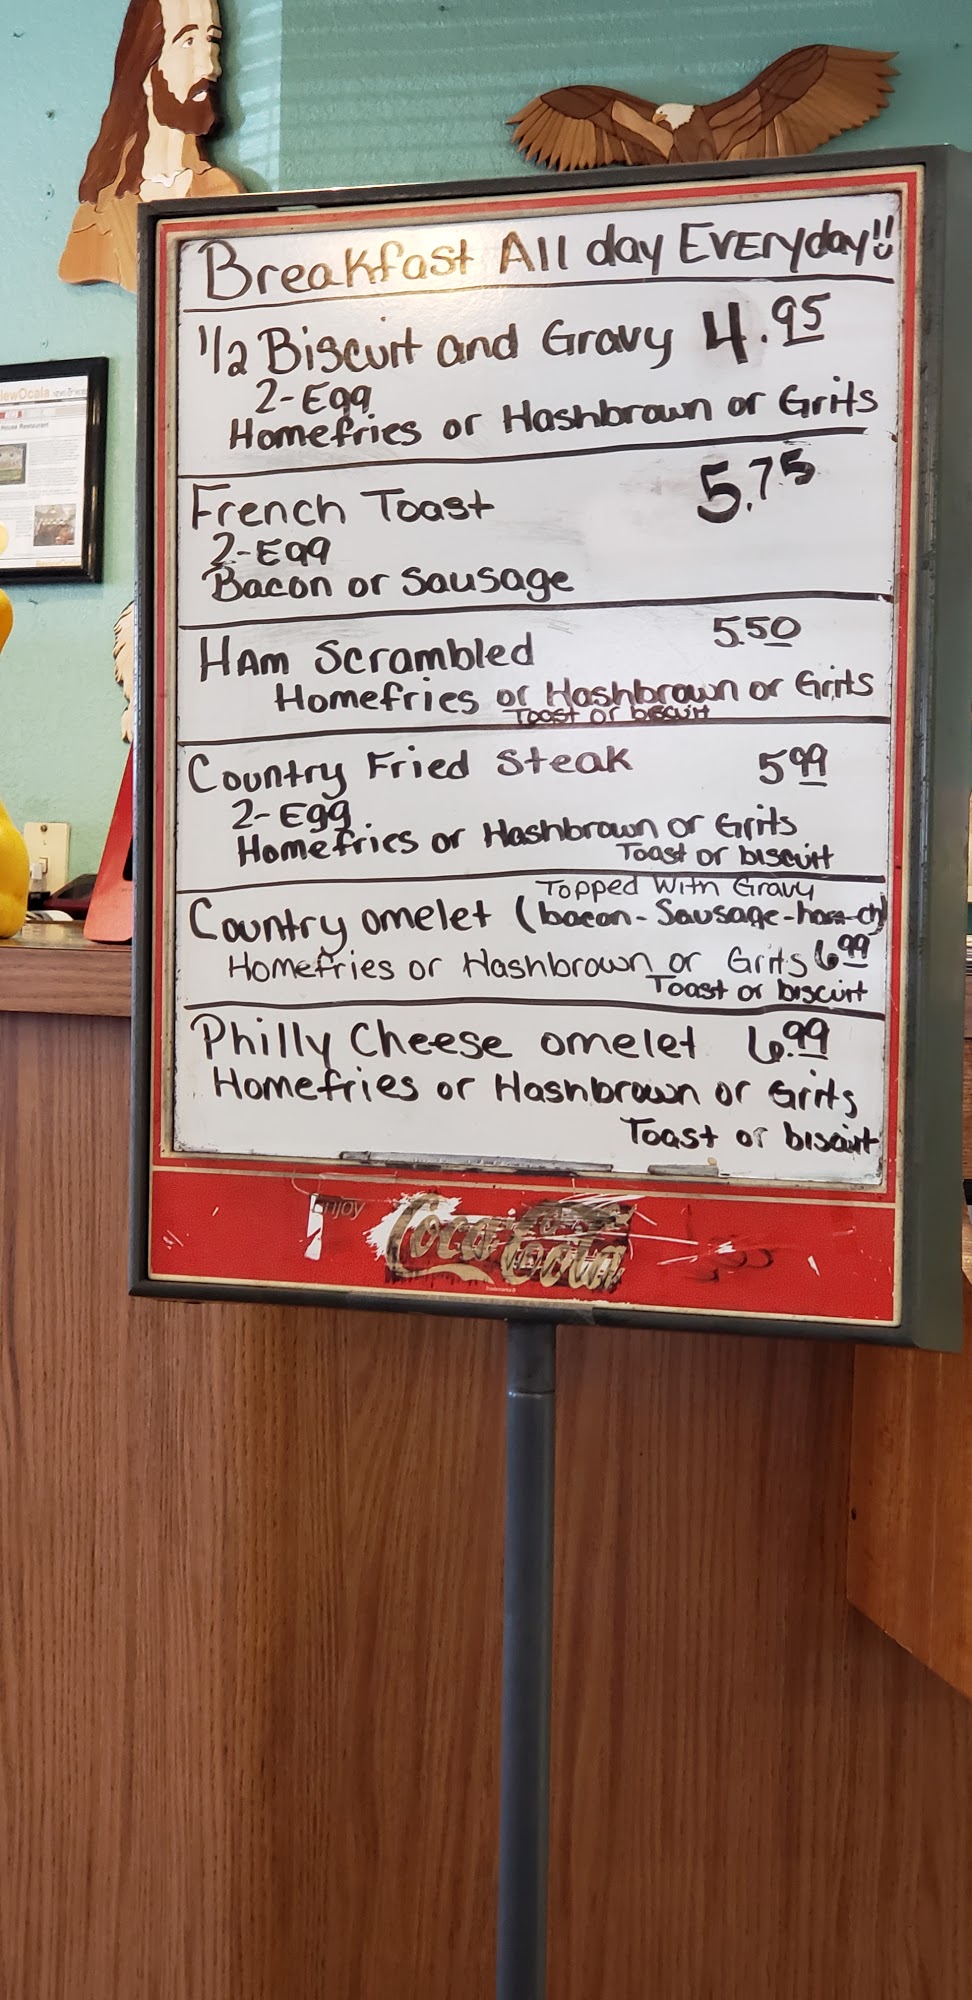 Breakfast All day Everyday!!
1/2 Biscuit and Gravy 4.95
2-Egg
Homefries or Hashbrown or Grits
French Toast 5.75
2-Egg
Bacon or Sausage
Ham Scrambled 5.50
Homefries or Hashbrown or Grits
Toast or biscuit
Country Fried Steak 5.99
2-Egg
Homefries or Hashbrown or Grits
Toast or biscuit
Topped With Gravy
Country omelet (bacon-Sausage-ham-ch)
Homefries or Hashbrown or Grits 6.99
Toast or biscuit
Philly Cheese omelet 6.99
Homefries or Hashbrown or Grits
Toast or biscuit
Enjoy
Coca-Cola
ewOcala
House Restaurant